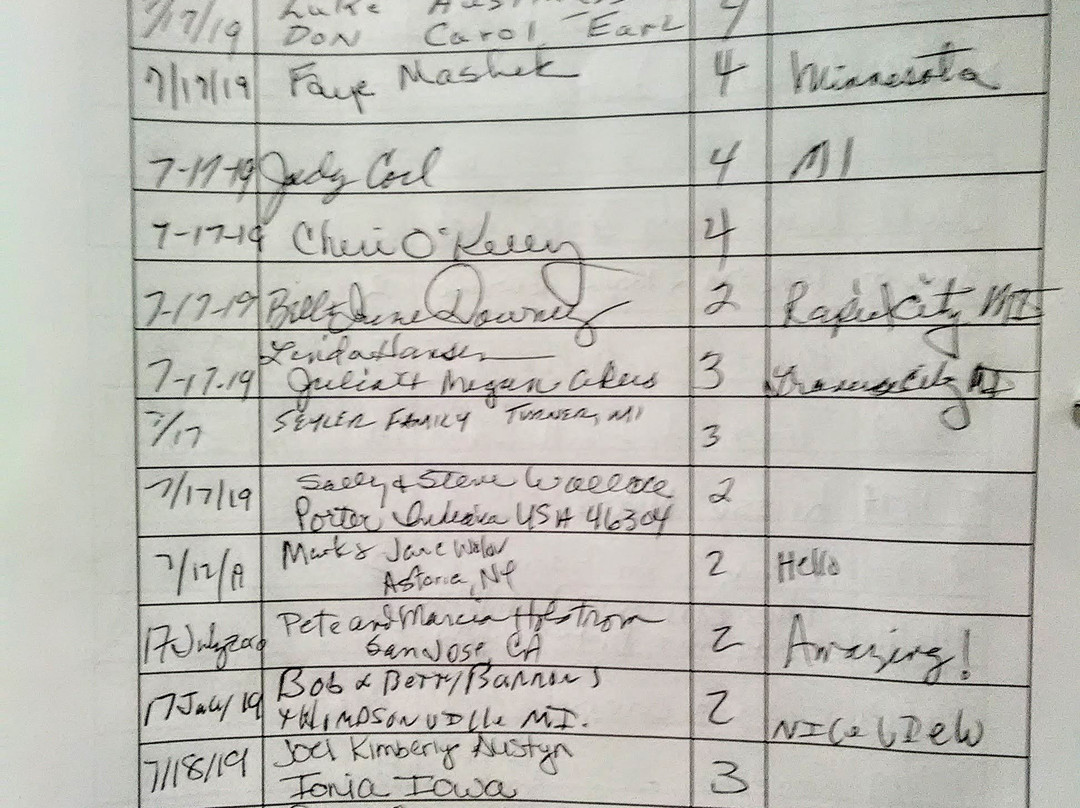 7/17/19 Luke
DON Carol Earl 4
7/17/19 Faye Mashek 4 Minnesota
7-17-19 Judy Cool 4 MI
7-17-19 Cheri O'Kelley 4
7-17-19 Bill & June Downey 2 Rapid City MI
Linda Hansen
7-17-19 Julia & Megan 3 Traverse City MI
7/17 SEYLER FAMILY TURNER, MI 3
7/17/19 Sally & Steve Wallace 2
Porter Indiana USA 46304
Mark & Jane 2 Hello
Astoria, NY
17 July Pete and Marcia Holstrom 2 Amazing!
San Jose, CA
17 July 19 Bob & 2 NICE VIEW
MI.
7/18/19 Joel Kimberly Austyn 3
Ionia Iowa